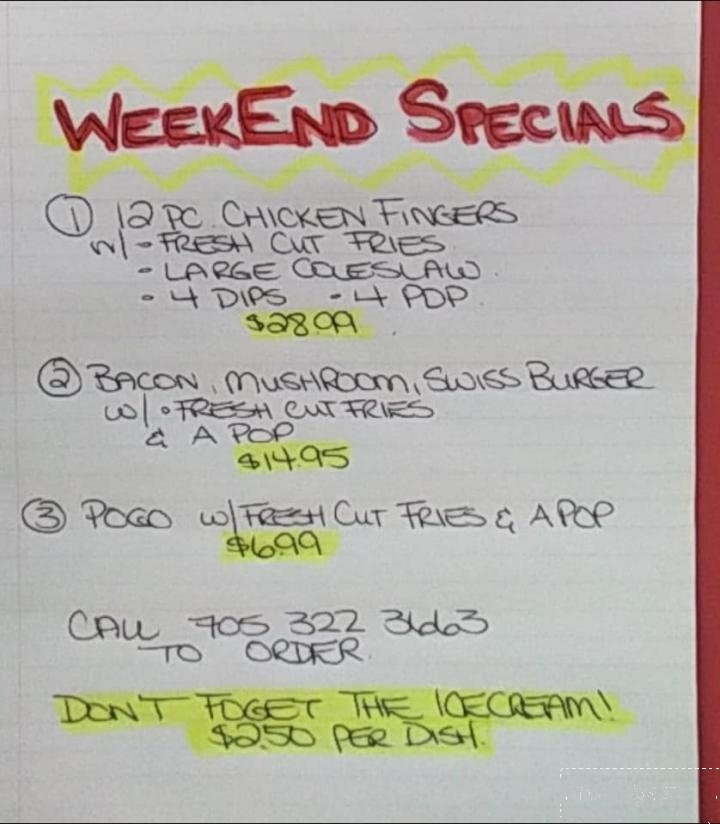 WEEKEND SPECIALS
① 12 PC. CHICKEN FINGERS
w/ - FRESH CUT FRIES
- LARGE COLESLAW
- 4 DIPS - 4 POP
$28.99
② BACON, MUSHROOM, SWISS BURGER
w/ • FRESH CUT FRIES
& A POP
$14.95
③ POGO w/ FRESH CUT FRIES & A POP
$6.99
CALL 705 322 3663
TO ORDER.
DON'T FOGET THE ICECREAM!
$2.50 PER DISH.